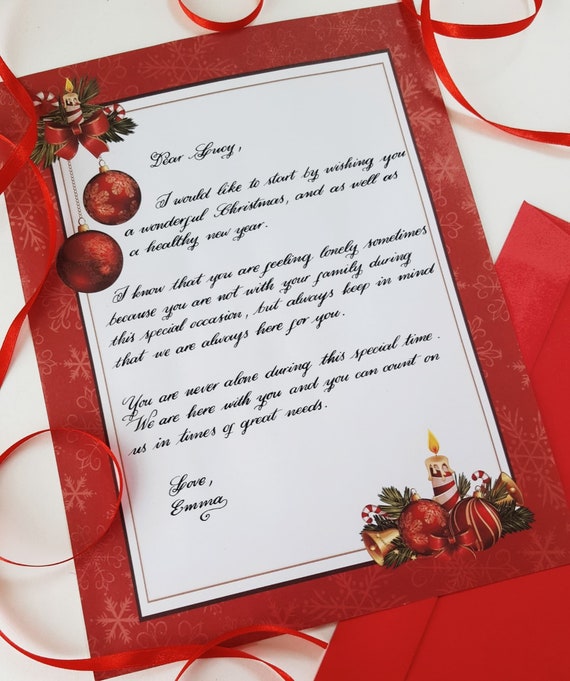 Dear Lucy,
I would like to start by wishing you
a wonderful Christmas, and as well as
a healthy new year.
I know that you are feeling lonely sometimes
because you are not with your family during
this special occasion, but always keep in mind
that we are always here for you.
You are never alone during this special time.
We are here with you and you can count on
us in times of great needs.
Love,
Emma